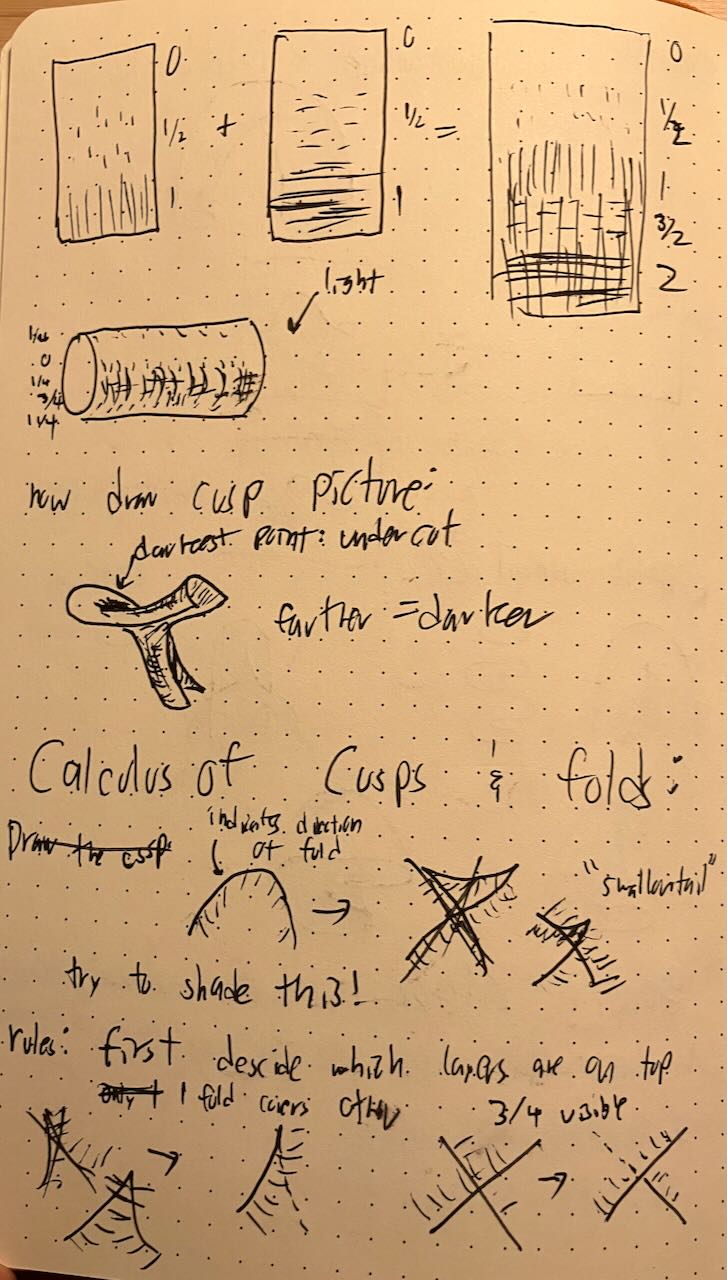 0
1/2
1
+
0
1/2
1
=
0
1/2
1
3/2
2
light
0
1/4
3/4
1 1/4
how draw cusp picture:
darkest point: undercut
farther = darker
Calculus of Cusps & folds:
Draw the cusp
indicates direction
of fold
"swallowtail"
try to shade this!
rules: first descide which layers are on top
only 1 fold covers other
3/4 visible